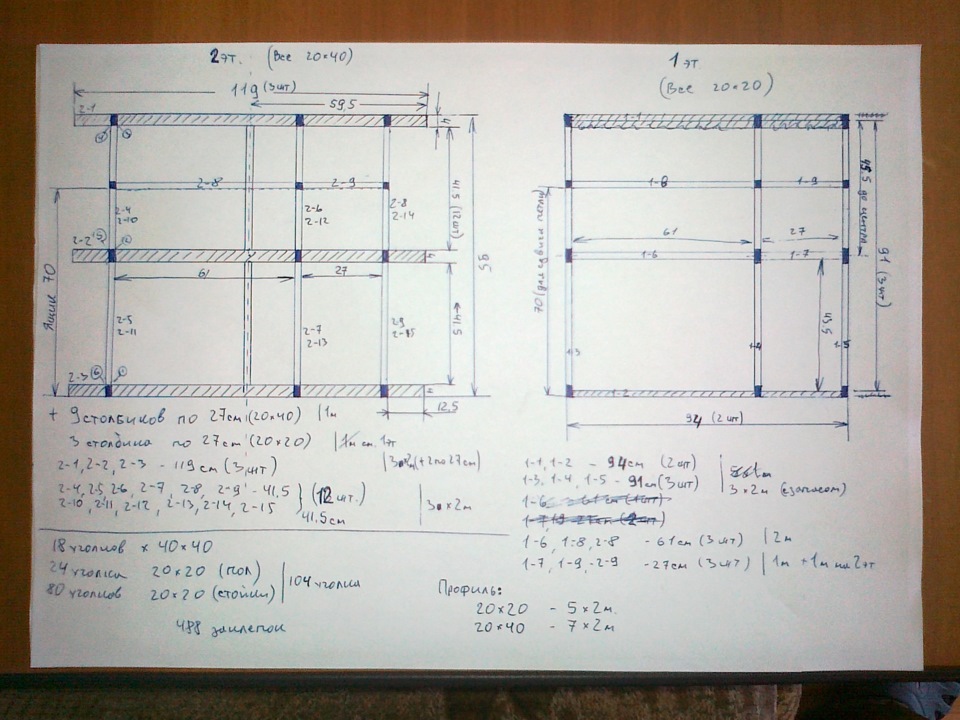 2 эт. (все 20×40)
119 (3шт)
59,5
2-1
4
2-8
2-9
2-4
2-10
2-6
2-12
2-8
2-14
41,5 (12шт)
95
2-2
61
27
70
2-5
2-11
2-7
2-13
2-9
2-15
41,5
2-3
12,5
1 эт
(все 20×20)
1-8
1-9
45,5 до центра
61
27
1-6
1-7
91 (3шт)
70 (для задвижки петли)
43,5
1-3
1-4
1-5
1-2
94 (2шт)
+ 9 столбиков по 27см (20×40) | 1м
3 столбика по 27см (20×20) | 1м см. 1эт
2-1, 2-2, 2-3 - 119см (3шт) | (+2 по 27см)
2-4, 2-5, 2-6, 2-7, 2-8, 2-9 - 41,5 (12шт.)
2-10, 2-11, 2-12, 2-13, 2-14, 2-15 41,5см | 3 × 2м
18 уголков × 40×40
24 уголка 20×20 (пол)
80 уголков 20×20 (стойки) | 104 уголка
488 заклепок
1-1, 1-2 - 94см (2шт)
1-3, 1-4, 1-5 - 91см (3шт) | 3×2м (с запасом)
1-6, 1-8, 2-8 - 61см (3шт) | 2м
1-7, 1-9, 2-9 - 27см (3шт) | 1м +1м на 2эт
Профиль:
20×20 - 5×2м.
20×40 - 7×2м